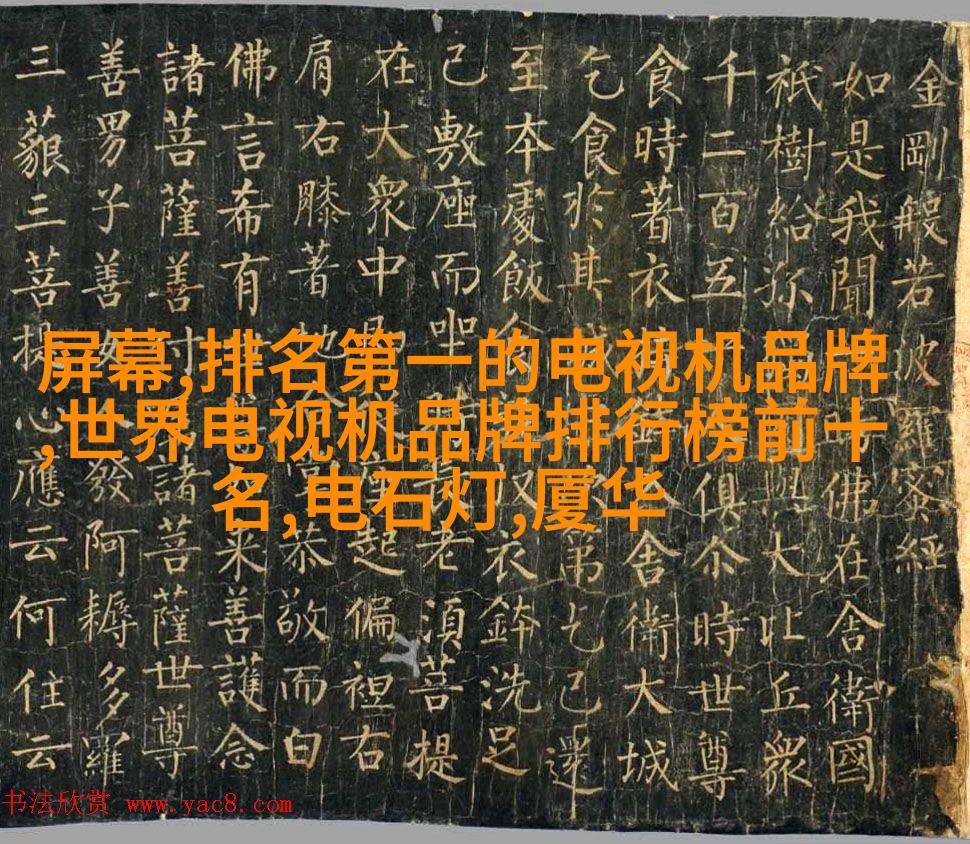 金剛般若波羅蜜經
如是我聞時佛在舍衛國
祇樹給孤與大比丘眾
千二百五俱尒時世尊
食時著衣持舍衛大城
乞食於其城第乞已還
至本處飯食收衣鉢洗足
已敷座而坐長老須菩提
在大眾中起偏袒右
肩右膝著地恭敬而白
佛言希有來善護念
諸菩薩善付諸菩薩世尊
善男子善女發阿耨多羅
三藐三菩提心應云何住云
屏幕,排名第一的电视机品牌
,世界电视机品牌排行榜前十
名,电石灯,厦华
书法欣赏 www.yac8.com